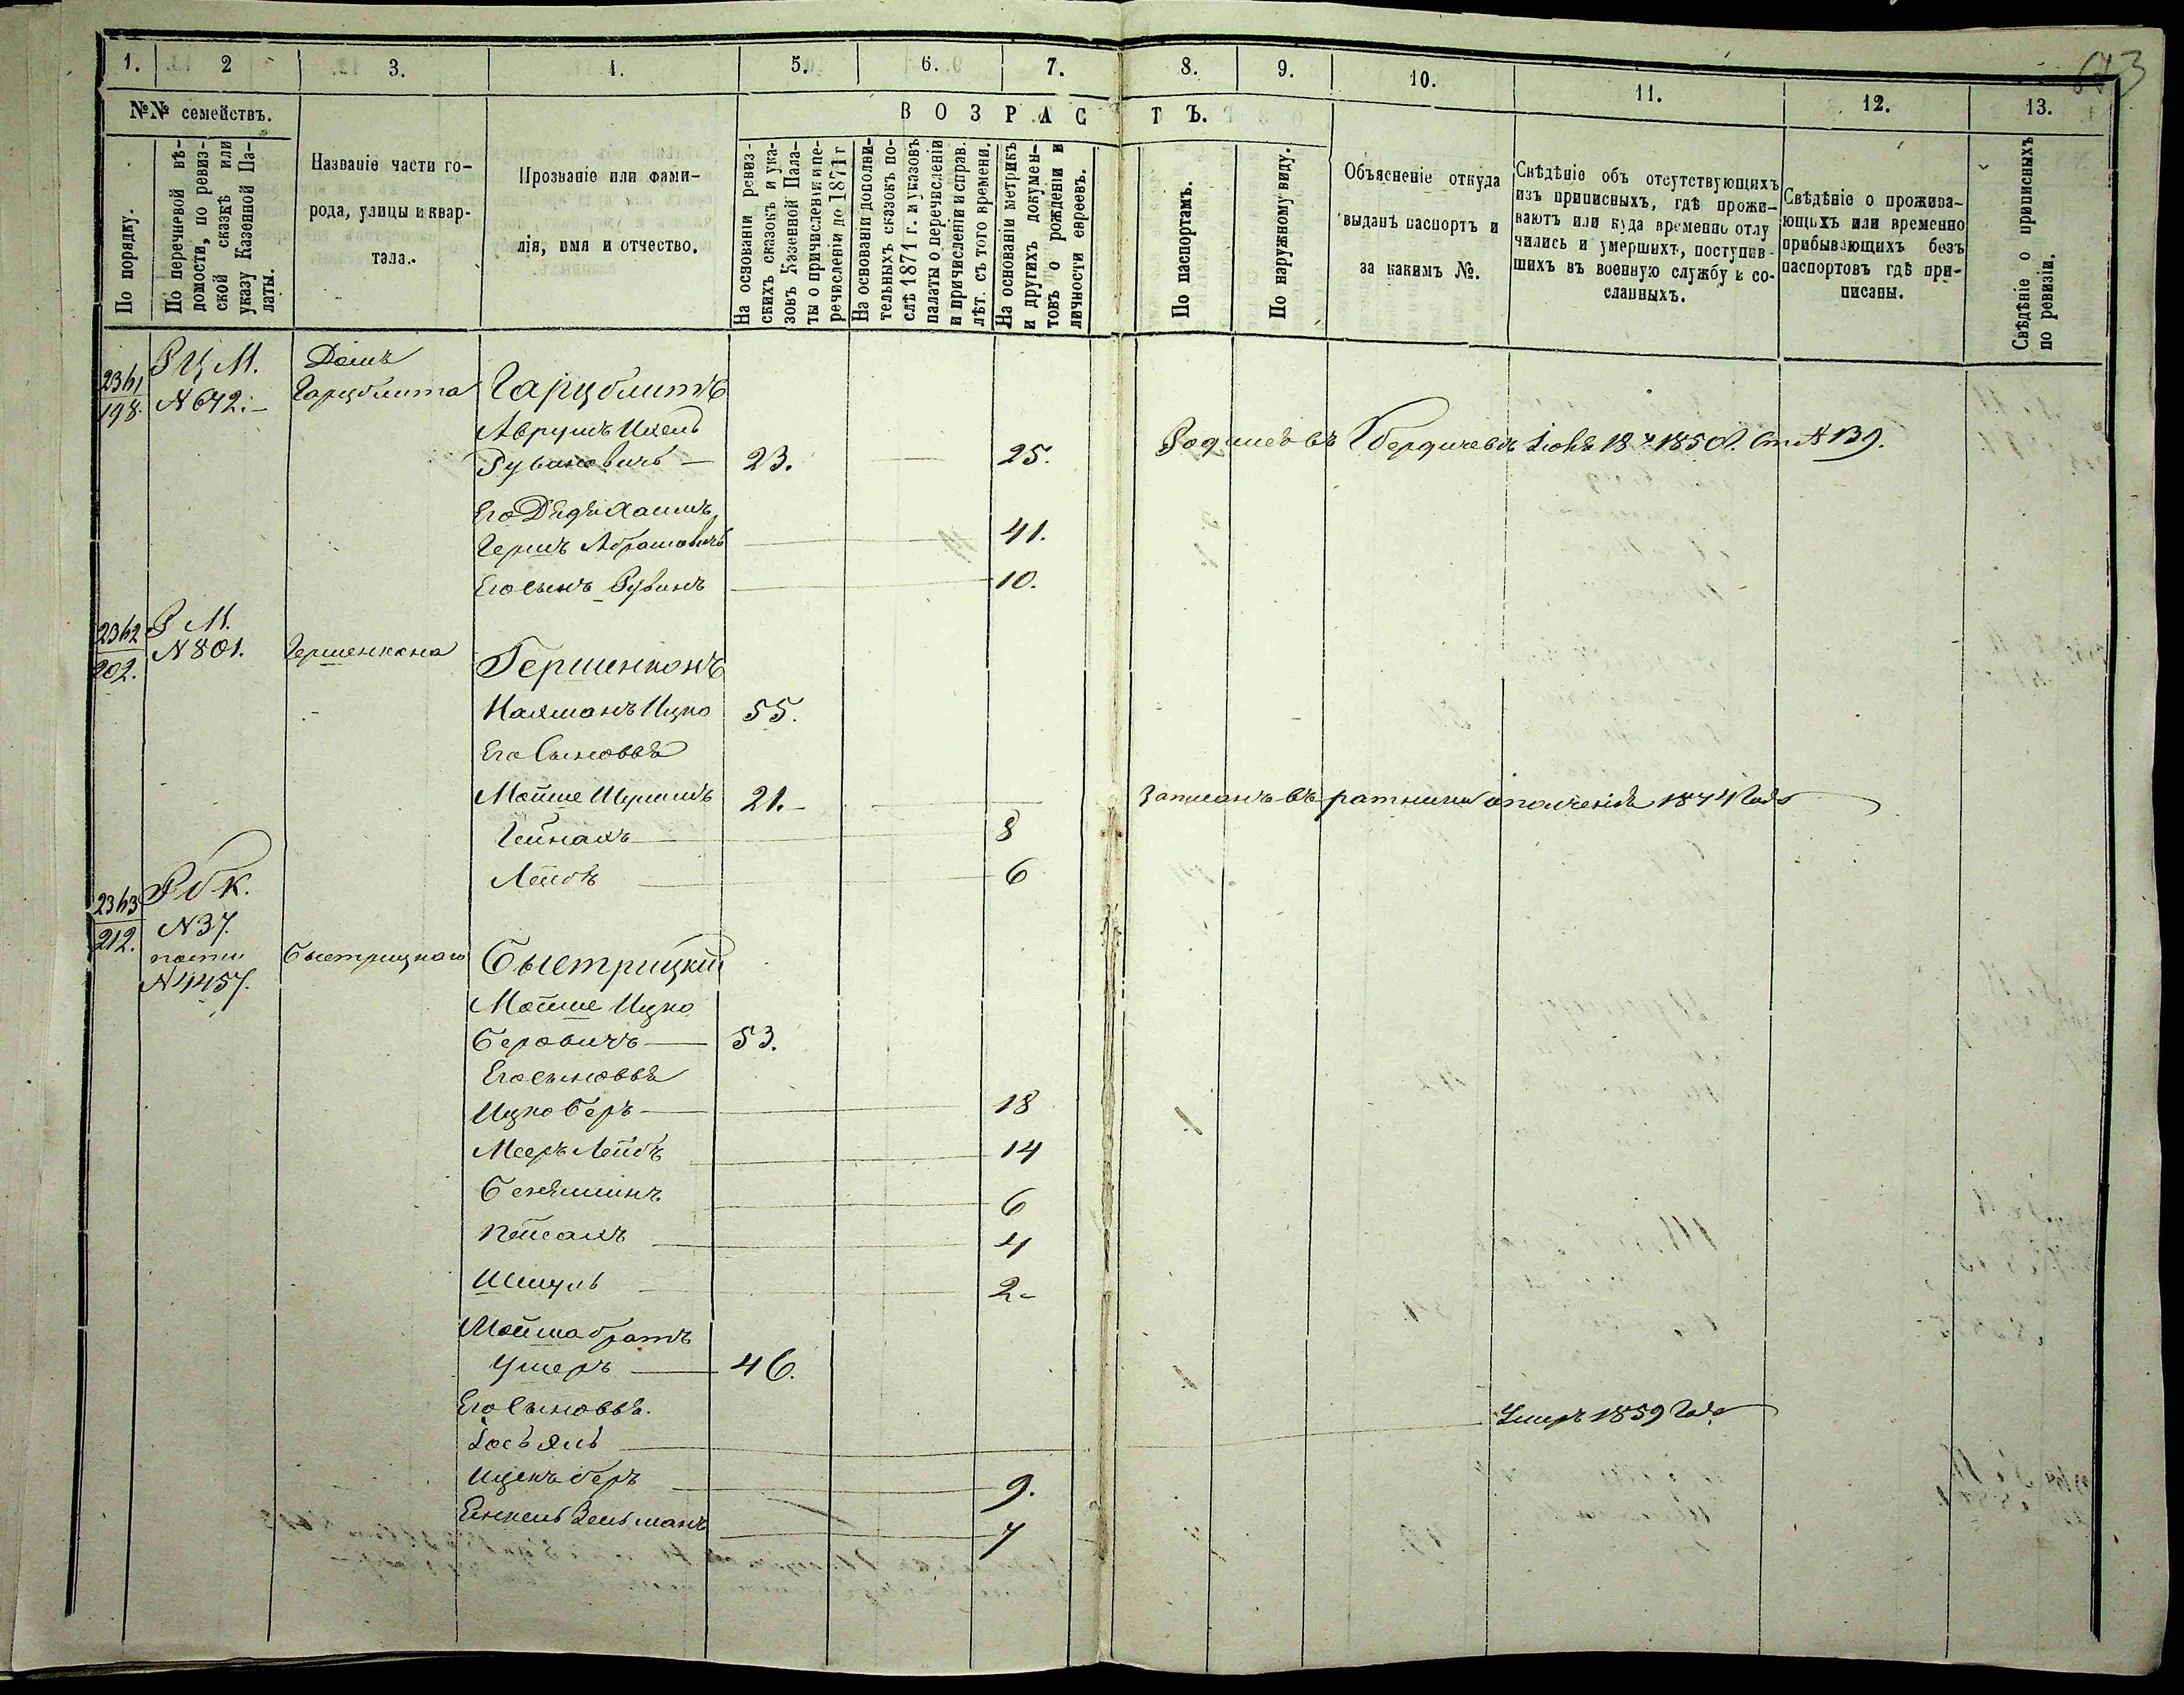 673
1. 2 3. 4. 5. 6. 7. 8. 9. 10. 11. 12. 13.
№№ семействъ.
ВОЗРАСТЪ.
По порядку.
По перечневой вѣ-
домости, по ревиз-
ской сказкѣ или
указу Казенной Па-
латы.
Названіе части го-
рода, улицы и квар-
тала.
Прозваніе или фами-
лія, имя и отчество.
На основаніи ревиз-
скихъ сказокъ и ука-
зовъ Казенной Пала-
ты о причисленіи и пе-
речисленіи до 1871 г
На основаніи дополни-
тельныхъ сказокъ по-
слѣ 1871 г. и указовъ
палаты о перечисленіи
и причисленіи и справ.
лѣт. съ того времени.
На основаніи метрикъ
и другихъ докумен-
товъ о рожденіи и
личности евреевъ.
По паспортамъ.
По наружному виду.
Объясненіе откуда
выданъ паспортъ и
за какимъ №.
Свѣдѣніе объ отсутствующихъ
изъ приписныхъ, гдѣ прожи-
ваютъ или куда временно отлу
чились и умершихъ, поступив-
шихъ въ военную службу и со-
сланныхъ.
Свѣдѣніе о прожива-
ющихъ или временно
прибывающихъ безъ
паспортовъ гдѣ при-
писаны.
Свѣдѣніе о приписныхъ
по ревизіи.
2361 Р Ц М. Домъ
198. N 642. Гарцблита Гарцблитъ
Аврумъ Ихель
Рувиновичъ 23. 25. Родился въ Бердичевѣ Іюня 18 г. 1850 Ст N 139.
Его Дядя Хаимъ
Гершъ Абрамовичъ 41.
Его сынъ Рувинъ 10.
2362 Р М.
202. N 801. Гершенкона Гершенконъ
Нахманъ Ицко 55.
Его Сыновья
Мойше Шулимъ 21. Записанъ въ ратники ополченія 1874 Года
Гейнахъ 8
Лейбъ 6
2363 Р б К.
212. N 37.
N 4457. Быстрицкаго Быстрицкій
Мойше Ицко
Беровичъ 53.
Его сыновья
Ицко Беръ 18
Мееръ Лейбъ 14
Беньяминъ 6
Пейсахъ 4
Шмуль 2
Мойша братъ
Ушеръ 46.
Его Сыновья.
Умеръ 1859 Года
Іось
Ицекъ беръ 9.
Енкель Зельманъ 7